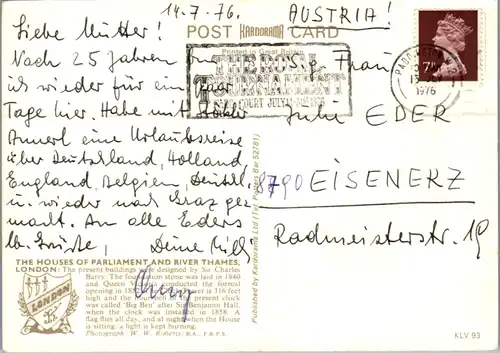 14.7.76.
AUSTRIA!
POST KARDORAMA CARD
Printed in Great Britain
Liebe Mutter!
Nach 25 Jahren bin
ich wieder für ein paar
Tage hier. Habe mit
Annerl eine Urlaubsreise
über Deutschland, Holland,
England, Belgien, Deutschl.
u. wieder nach Graz ge-
macht. An alle Eders
lb. Grüße, Deine
S.g. Frau
Juli EDER
8790 EISENERZ
Radmeisterstr. 19
THE ROYAL
TOURNAMENT
EARLS COURT JULY
PADDINGTON
1976
7P
Published by Kardorama Ltd (Tel. Potters Bar 52781)
THE HOUSES OF PARLIAMENT AND RIVER THAMES,
LONDON: The present buildings were designed by Sir Charles
Barry. The foundation stone was laid in 1840
and Queen Victoria conducted the formal
opening in Tower is 316 feet
high and the hour bell of the present clock
was called 'Big Ben' after Sir Benjamin Hall,
when the clock was installed in 1858. A
flag flies all day, and at night when the House
is sitting, a light is kept burning.
Photograph W. W. Roberts, B.A., F.R.P.S.
LONDON
KLV 93